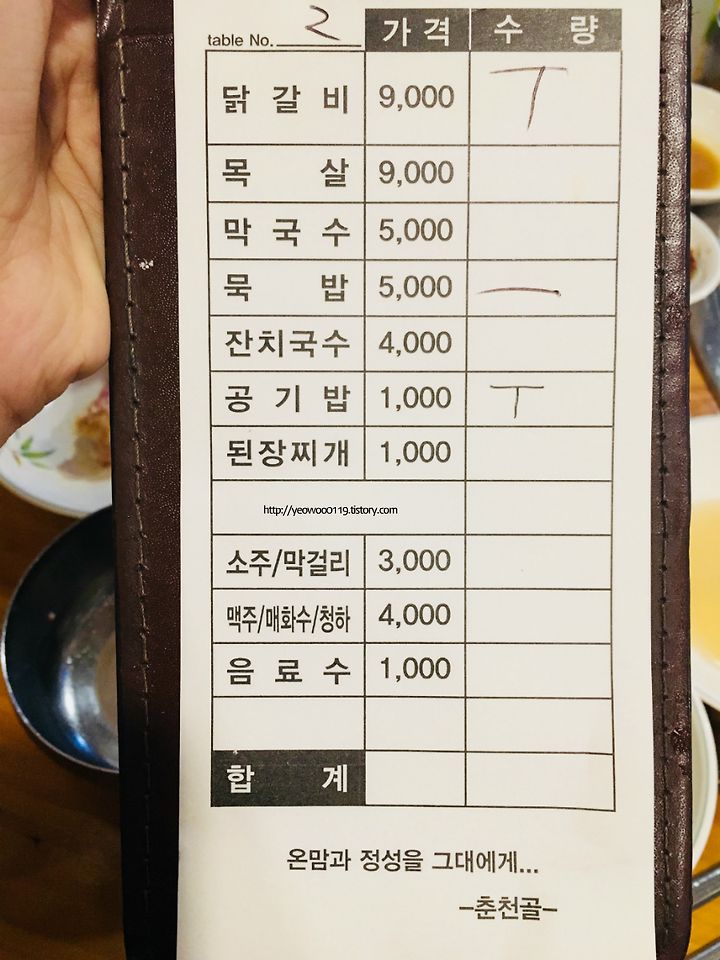 table No. 2 가격 수량
닭갈비 9,000 T
목살 9,000
막국수 5,000
묵밥 5,000 一
잔치국수 4,000
공기밥 1,000 T
된장찌개 1,000
http://yeowoo0119.tistory.com
소주/막걸리 3,000
맥주/매화수/청하 4,000
음료수 1,000
합계
온맘과 정성을 그대에게...
-춘천골-